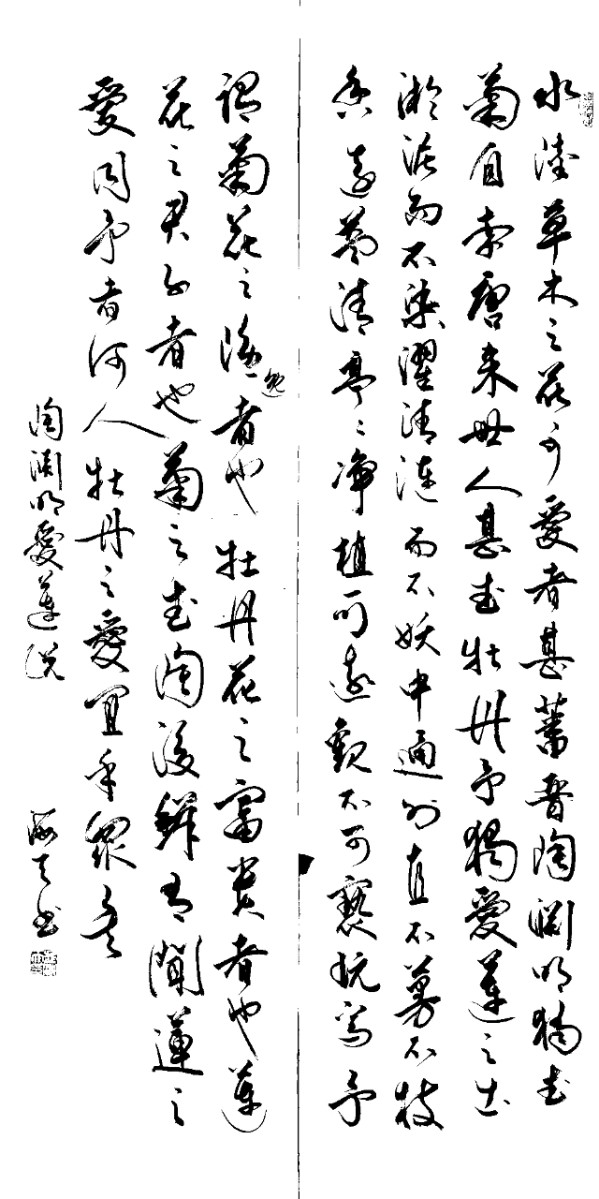 水陸草木之花可愛者甚蕃晉陶淵明獨爱
菊自李唐来世人甚爱牡丹予獨愛蓮之出
淤泥而不染濯清漣而不妖中通外直不蔓不枝
香遠益清亭〻净植可遠觀不可褻玩焉予
謂菊花之隱逸者也牡丹花之富贵者也蓮
花之君子者也菊之爱陶後鮮有聞蓮之
愛同予者何人牡丹之愛宜乎眾矣
陶淵明愛蓮説
海天书